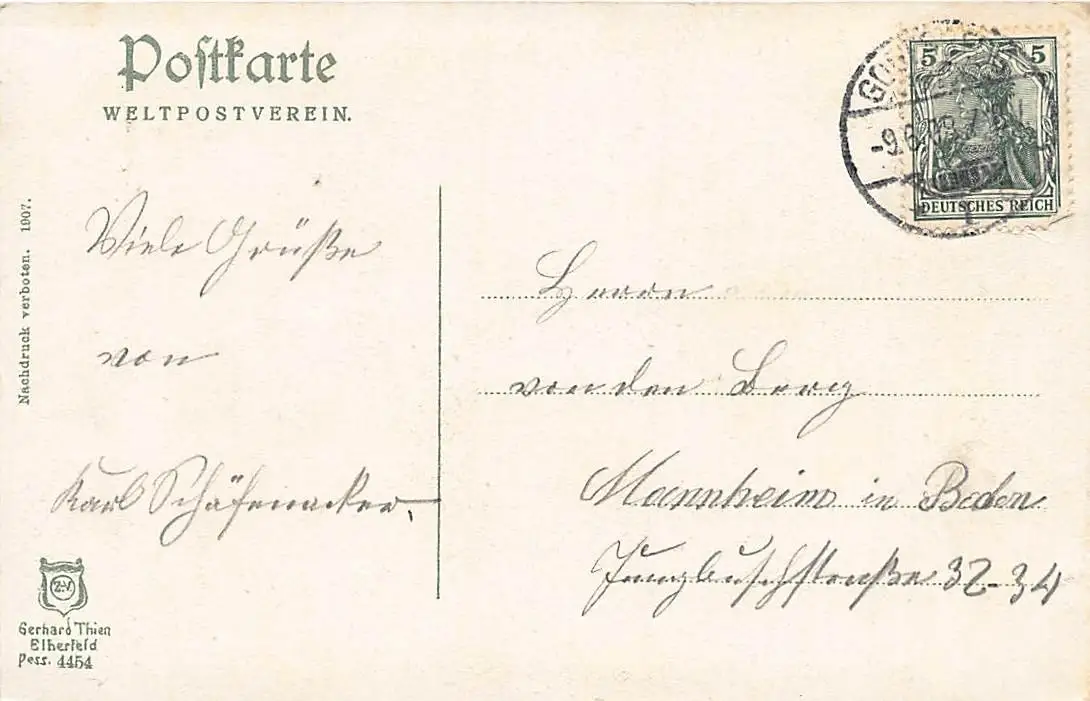 Postkarte
WELTPOSTVEREIN.
5 5
DEUTSCHES REICH
-9.6.09.7
Nachdruck verboten. 1907.
Viele Grüße
von
Karl Schäfenacker.
Herrn
von den Berg
Mannheim in Baden
Jungbuschstraße 32-34
Z-V.
Gerhard Thien
Elberfeld
Pess. 4454